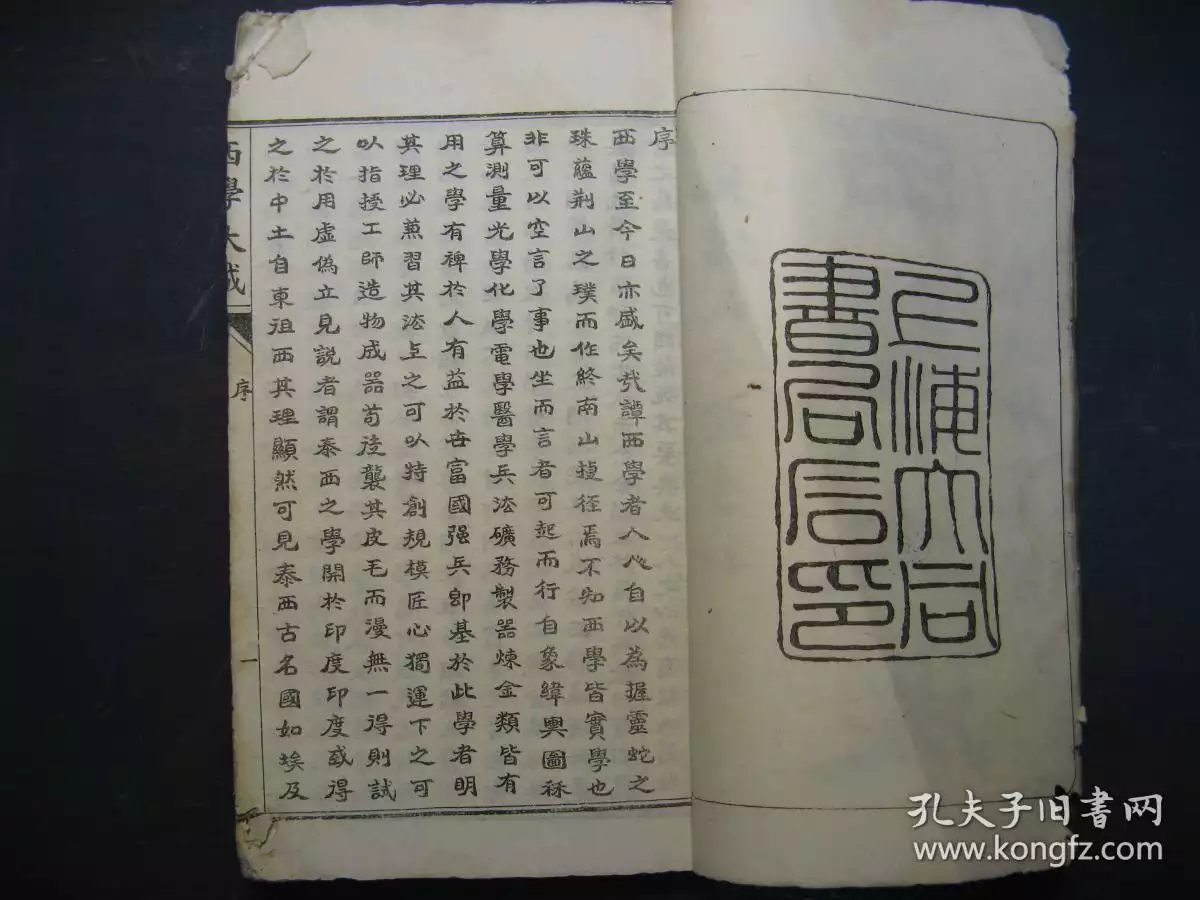 上海大同
書局石印
序
西學至今日亦盛矣哉譚西學者人人自以為握靈蛇之
珠蘊荆山之璞而作終南山捷徑焉不知西學皆實學也
非可以空言了事也坐而言者可起而行自象緯輿圖秝
算測量光學化學電學醫學兵法礦務製器煉金類皆有
用之學有裨於人有益於世富國强兵卽基於此學者明
其理必兼習其法上之可以特創規模匠心獨運下之可
以指授工師造物成器苟徒襲其皮毛而漫無一得則試
之於用虛偽立見説者謂泰西之學開於印度印度或得
之於中土自東徂西其理顯然可見泰西古名國如埃及
西學大成
序
一
孔夫子旧书网
www.kongfz.com